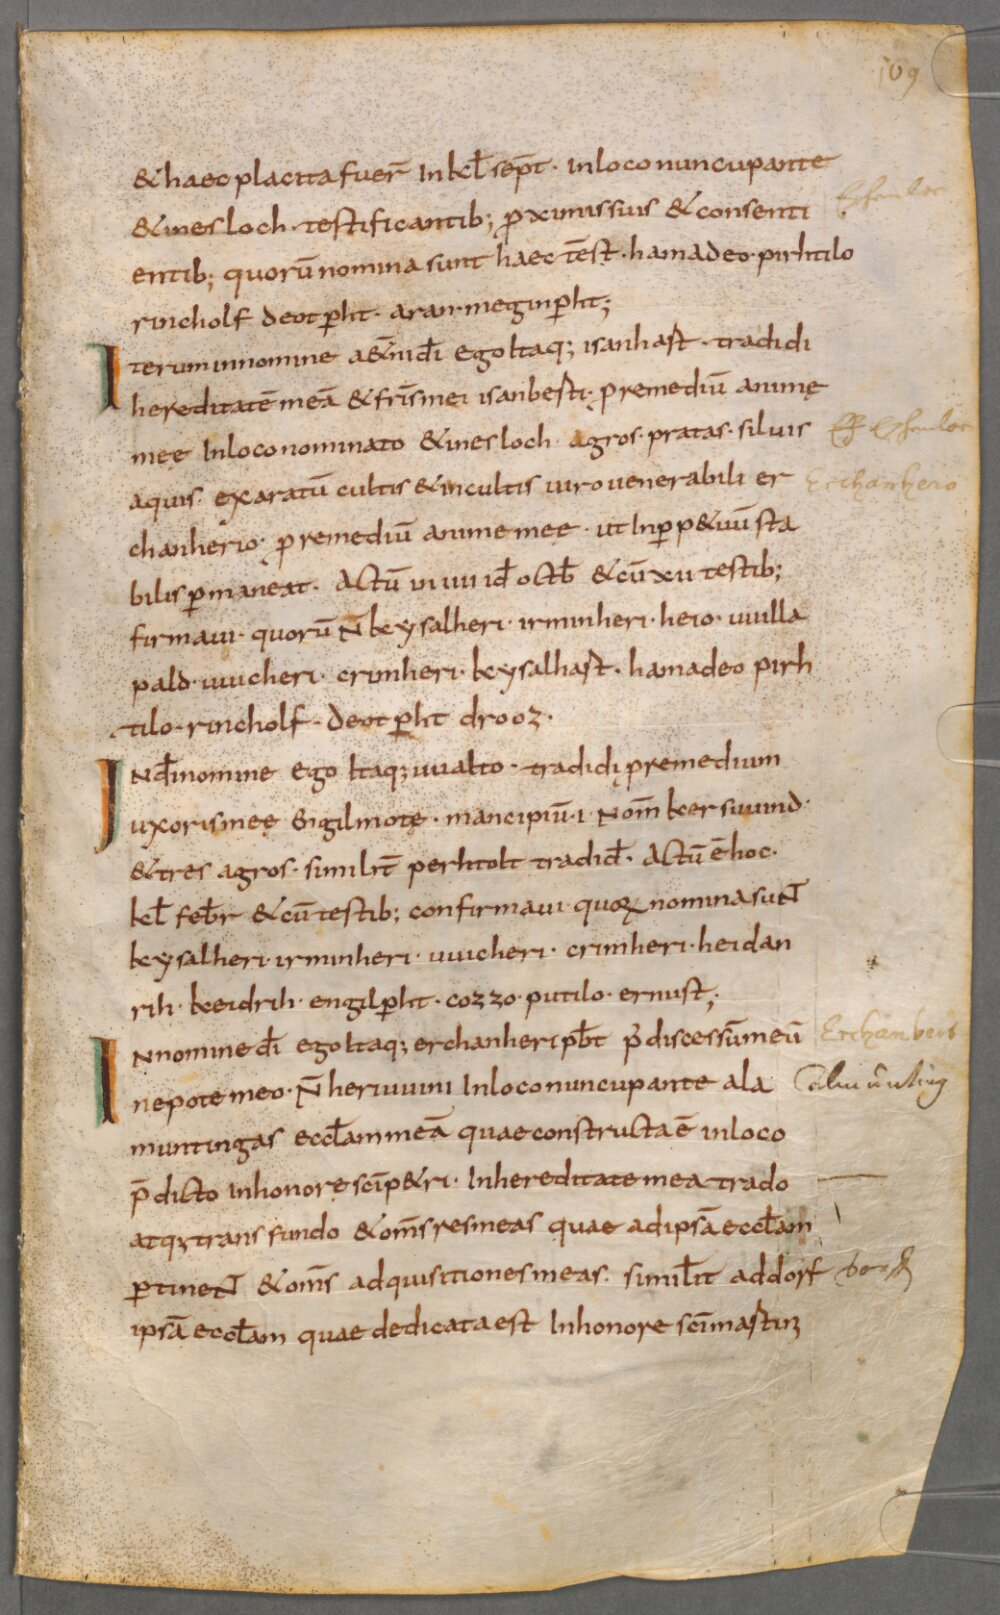 109
& haec placita fuer̄ In kɫ sep̄t · In loco nuncupante
& ines loch · testificantib; p̄ximis suis & consenti
entib; quorū nomina sunt haec t̄est · hamadeo · pirhtilo
rincholf deotp̄ht · aran · meginp̄ht;
Iterum in nomine a&̄ni dī ego Itaq; isanhast · tradidi
hereditatē meā & fr̄is mei isanbesti · p remediū animę
meę In loco nominato & ines loch · agros · pratas · siluis
aquis · exaratū cultis & incultis uiro uenerabili er
chanherio · p remediū anime meę · ut In pp&uū sta
bilis pmaneat · Actū in iiii id̄ octb̄ & cū xii testib;
firmaui · quorū N̄ keysalheri · irminheri · heio · uuilla
pald · uuicheri · crimheri · keysalhast · hamadeo pirh
tilo · rincholf · deotp̄ht drooz ·
IN dī nomine ego Itaq; uualto · tradidi p remedium
uxoris meę Sigilmote · mancipiū · i · Nom̄ kersuuind ·
& tres agros · similit̄ perhtolt tradid̄ · Actū ē hoc ·
kɫ feb̄r & cū testib; confirmaui · quoꝝ nomina suNT
keysalheri · irminheri · uuicheri · crimheri · heidan
rih · keidrih · engilp̄ht · cozzo · putilo · ernust;
IN nomine dī ego Itaq; erchanheri pb̄t p̄ discessū meū
nepote meo · N̄ heriuuini In loco nuncupante ala
muntingas eccɫam meā quae constructa ē in loco
p̄dicto in honore sc̄i p&ri · In hereditate mea trado
atq; transfundo & om̄s res meas quae ad ipsā eccɫam
ptineNT & om̄s adquisitiones meas · similit̄ ad dorf
ipsā eccɫam quae dedicata est In honore sc̄i mastin;
Eschenloc
Erchanherio
Almunting
dorff